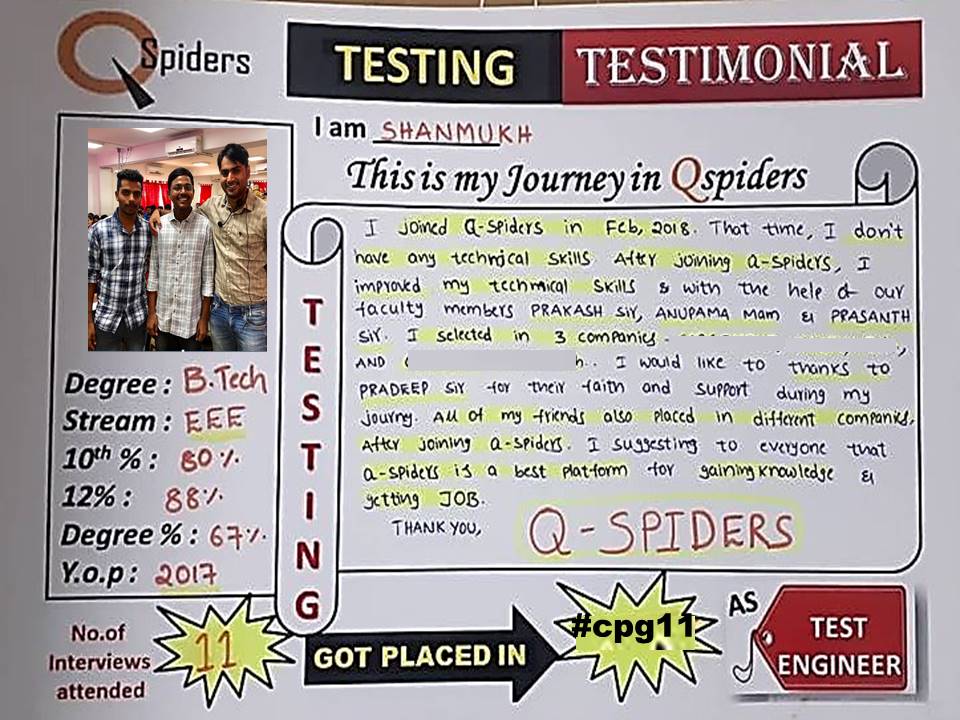 QSpiders
TESTING TESTIMONIAL
I am SHANMUKH
This is my Journey in Qspiders
I joined Q-spiders in Feb, 2018. That time, I don't
have any technical skills After joining Q-spiders, I
improved my technical skills & with the help of our
faculty members PRAKASH sir, ANUPAMA Mam & PRASANTH
sir. I selected in 3 companies -
AND
I would like to thanks to
PRADEEP sir for their faith and support during my
journy. All of my friends also placed in different companies.
After joining Q-spiders. I suggesting to everyone that
Q-spiders is a best platform for gaining knowledge &
getting JOB.
THANK YOU,
Q-SPIDERS
TESTING
Degree : B.Tech
Stream : EEE
10th % : 80%
12% : 88%
Degree % : 67%.
Y.o.p : 2017
No.of
Interviews
attended
11
GOT PLACED IN
#cpg11
AS
TEST
ENGINEER